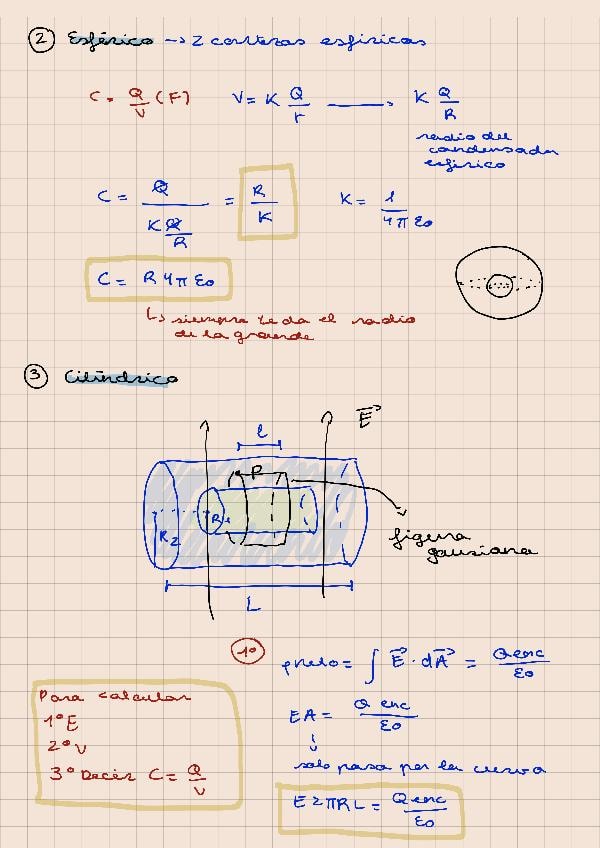 ② Esférico → 2 cortezas esfericas
C = Q/V (F) V = K Q/r → K Q/R
radio del
condensador
esferico
C = Q / (K Q/R) = R/K K = 1/4πε0
C = R 4π ε0
↳ siempre te da el radio
de la grande
③ Cilíndrico
E⃗
l
R
R1
R2
figura
gausiana
L
1º
φneto = ∫ E⃗ · dA⃗ = Qenc/ε0
EA = Q enc/ε0
↓
solo pasa por la curva
E 2πRL = Qenc/ε0
Para calcular
1º E
2º V
3º Decir C = Q/V